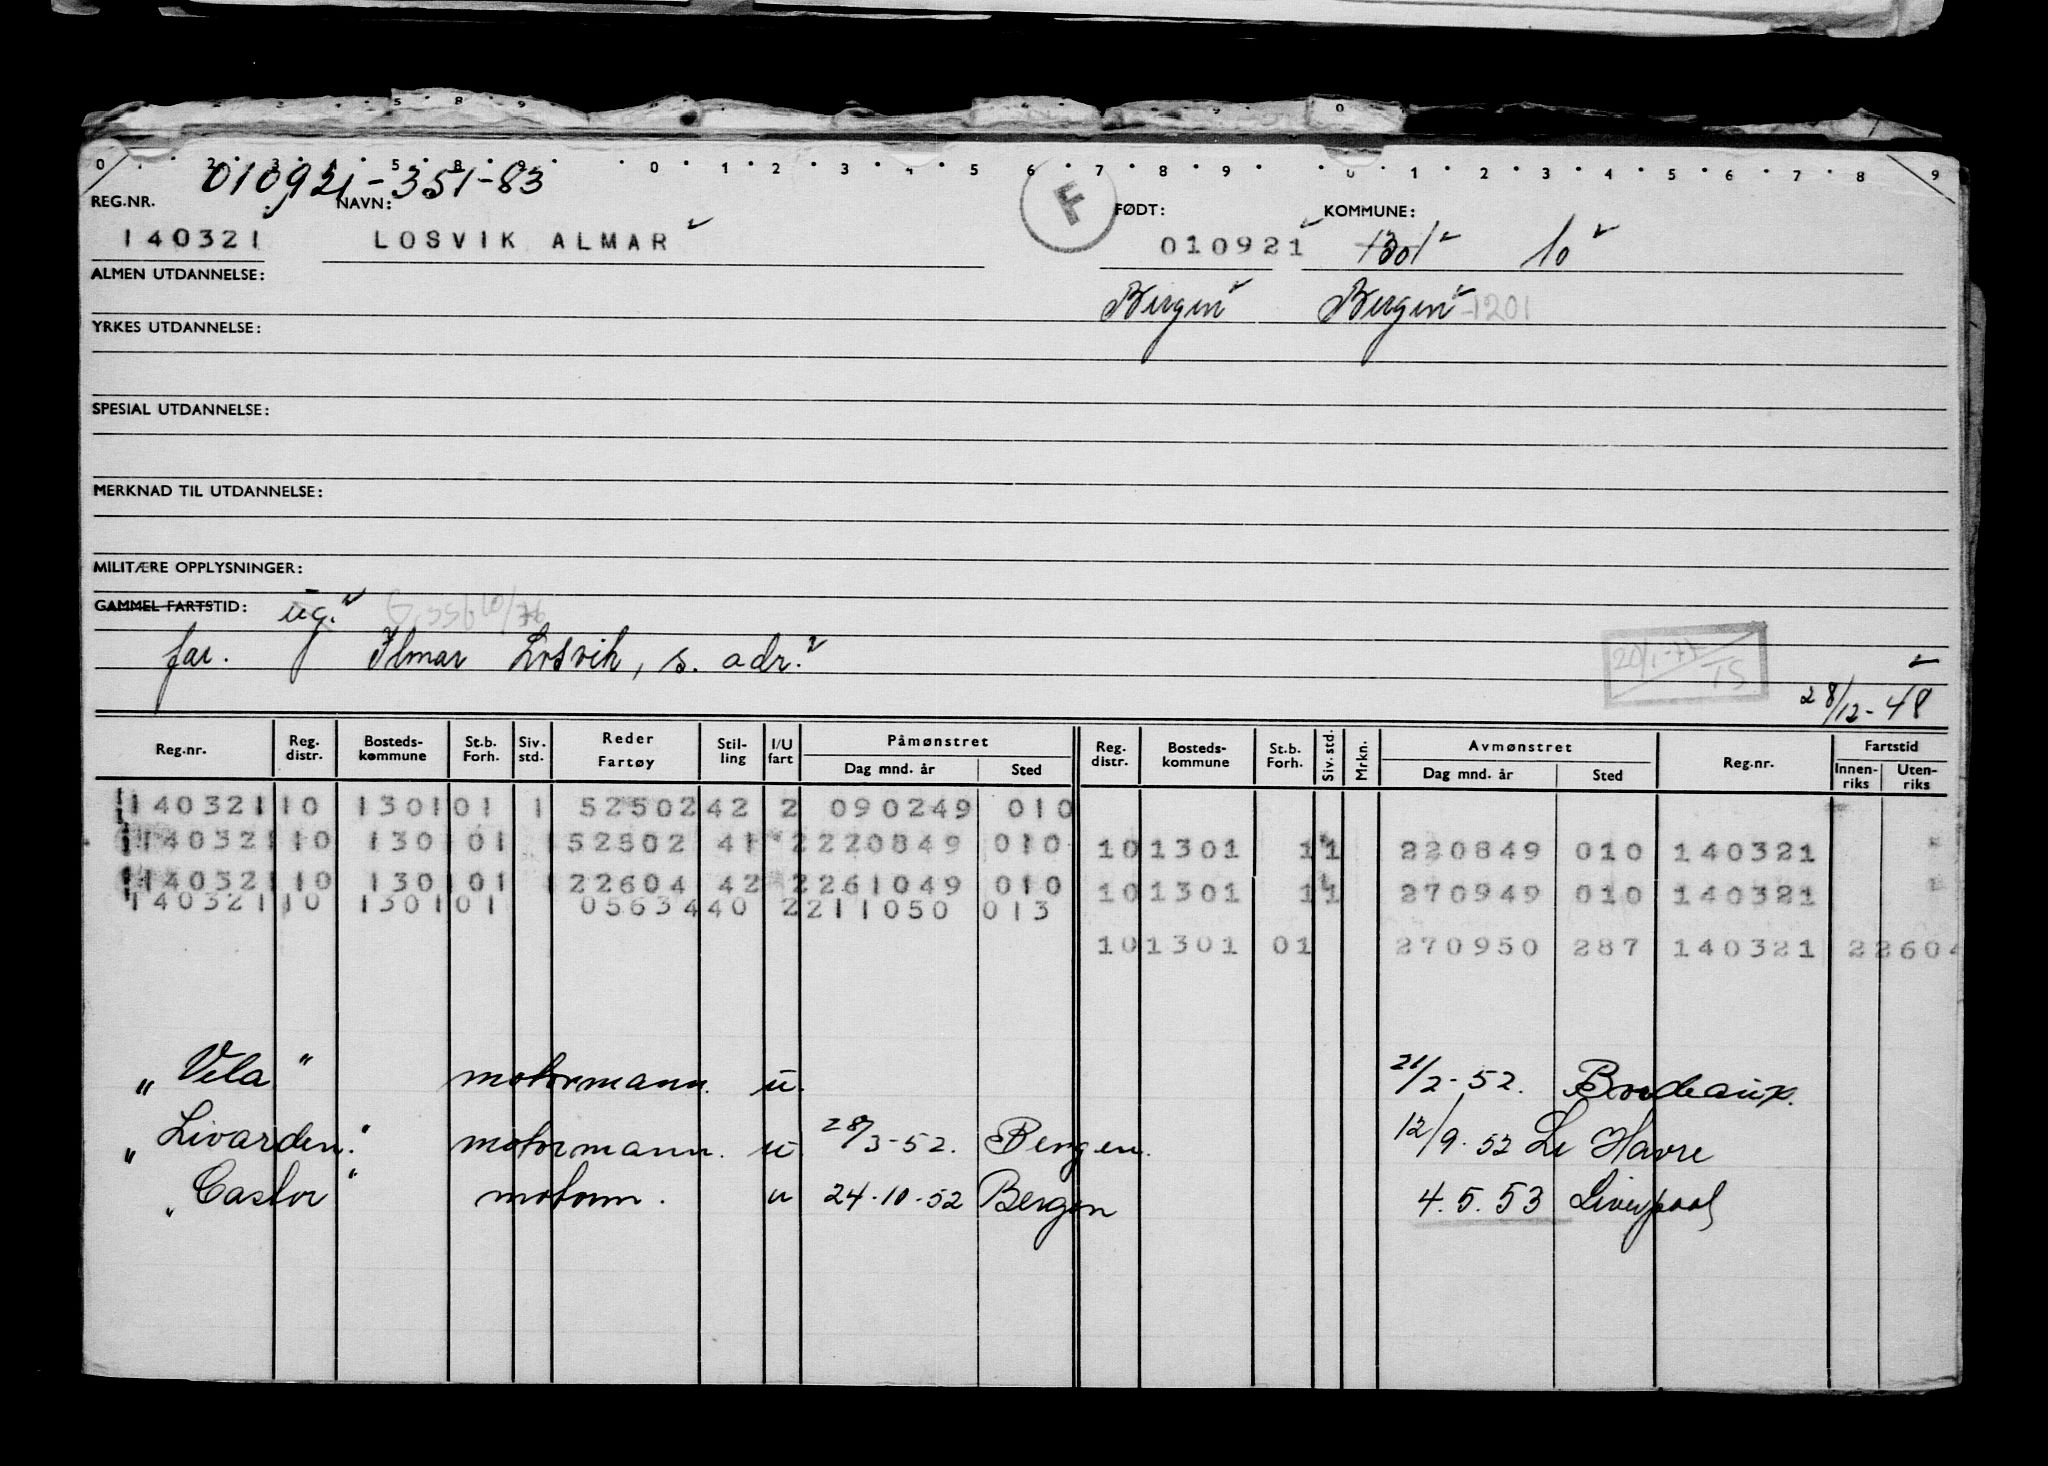 0 2 3 4 5 8 9 0 1 2 3 4 5 6 7 8 9 0 1 2 3 4 5 6 7 8 9
010921-351-83
REG.NR. NAVN: F FØDT: KOMMUNE:
140321 LOSVIK ALMAR 010921 1301 10
ALMEN UTDANNELSE:
Bergen Bergen 1201
YRKES UTDANNELSE:
SPESIAL UTDANNELSE:
MERKNAD TIL UTDANNELSE:
MILITÆRE OPPLYSNINGER:
GAMMEL FARTSTID: ug.
far. Ilmar Losvik, s. adr.
28/12-48
Reg.nr. Reg. distr. Bosteds-kommune St.b. Forh. Siv. std. Reder Fartøy Stil-ling I/U fart Påmønstret Dag mnd. år Sted Reg. distr. Bosteds-kommune St.b. Forh. Siv. std. Mrkn. Avmønstret Dag mnd. år Sted Reg.nr. Fartstid Innen-riks Uten-riks
140321 10 1301 01 1 52502 42 2 090249 010
140321 10 1301 01 1 52502 41 2 220849 010 10 1301 1 1 220849 010 140321
140321 10 1301 01 1 22604 42 2 261049 010 10 1301 1 1 270949 010 140321
140321 10 1301 01 05634 40 2 211050 013
10 1301 01 270950 287 140321 22604
"Vela" motormann. u. 21/2-52. Bordeaux.
"Livarden." motormann. u 28/3-52. Bergen. 12/9-52 Le Havre
"Castor" motorm. u 24-10-52 Bergen 4.5.53 Liverpool